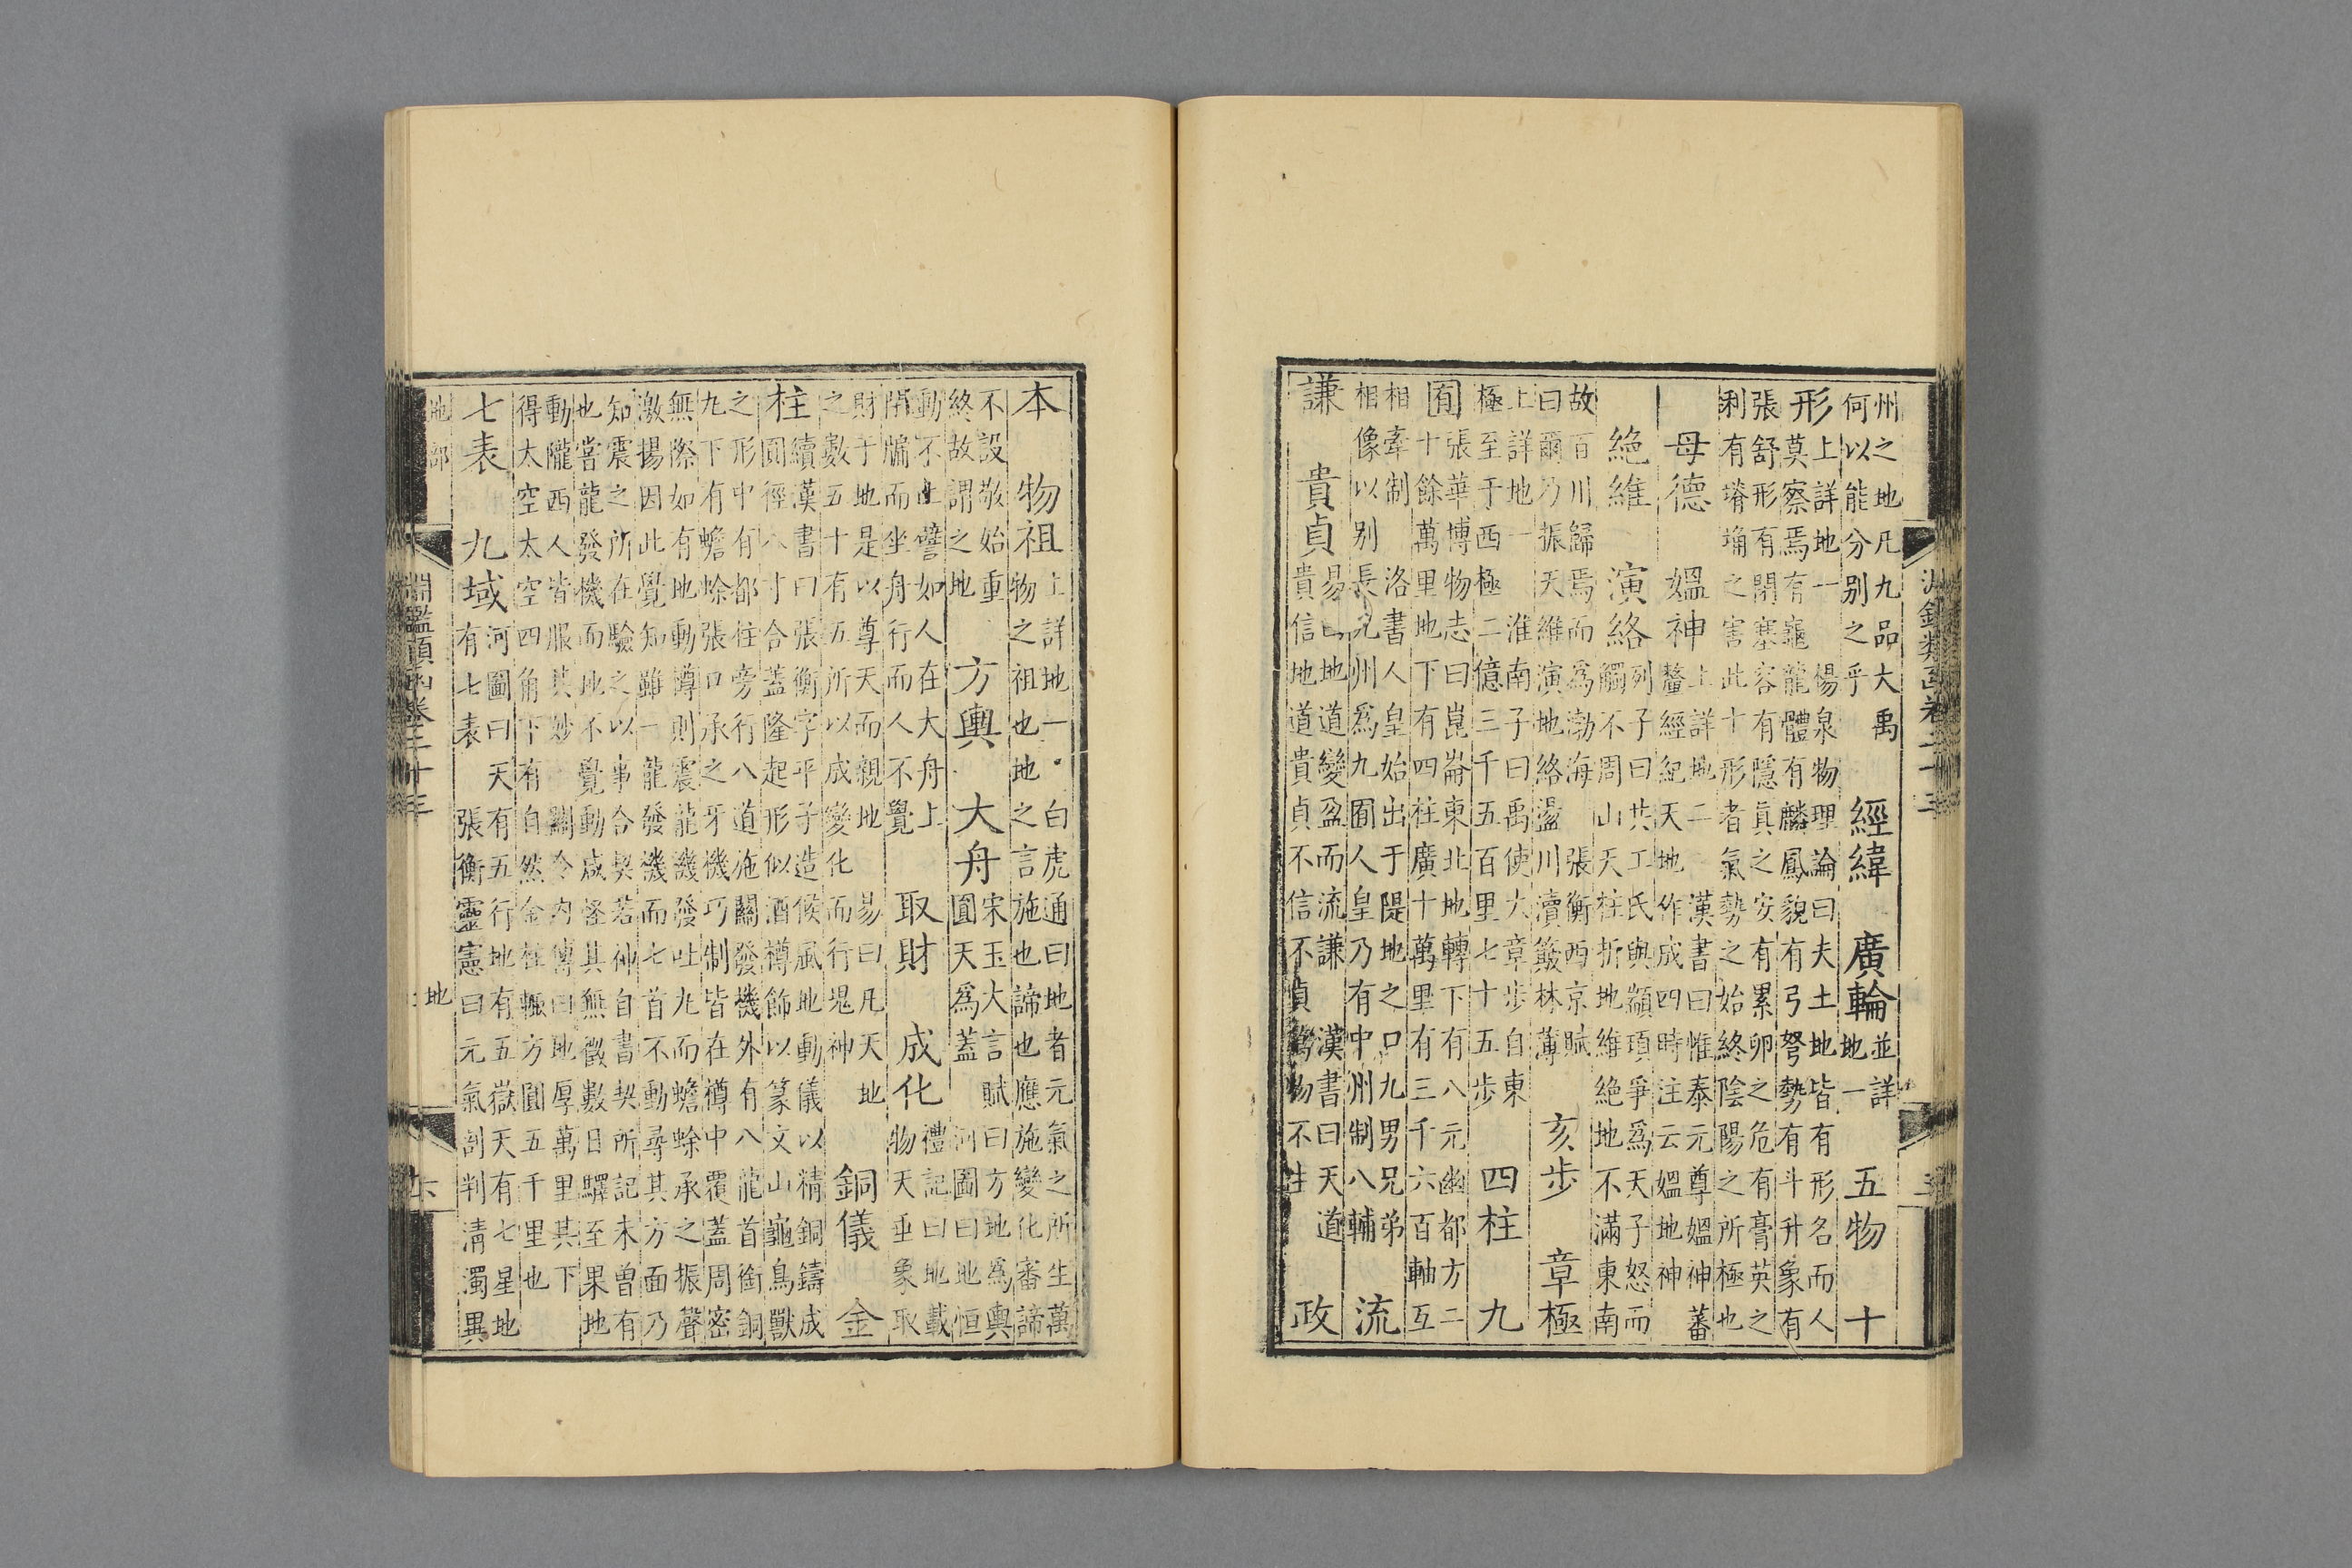 州之地凡九品大禹
何以能分别之乎
經緯　廣輪
並詳
地一
五物　十
形
上詳地一　楊泉物理論曰夫土地皆有形名而人
莫察焉有龜龍體有麟鳳貌有弓弩勢有斗升象有
張舒形有閉塞容有隱真之安有累卵之危有膏英之
利有塉埆之害此十形者氣勢之始終陰陽之所極也
母德　媼神
上詳地二　漢書曰惟泰元尊媼神蕃
釐經紀天地作成四時注云媼地神
絶維　演絡
列子曰共工氏與顓頊爭爲天子怒而
觸不周山天柱折地維絶地不滿東南
故百川歸焉而爲渤海　張衡西京賦
曰爾乃振天維演地絡盪川瀆簸林薄
亥步　章極
上詳地一　淮南子曰禹使大章步自東
極至于西極二億三千五百里七十五步
四柱　九
囿
張華博物志曰崑崙東北地轉下有八元幽都方二
十餘萬里地下有四柱廣十萬里有三千六百軸互
相牽制　洛書人皇始出于隄地之口九男兄弟
相像以别長九州爲九囿人皇乃有中州制八輔
流
謙　貴貞
易曰地道變盈而流謙　漢書曰天道
貴信地道貴貞不信不貞萬物不生
政
本　物祖
上詳地一　白虎通曰地者元氣之所生萬
物之祖也地之言施也諦也應施變化審諦
不設敬始重
終故謂之地
方輿　大舟
宋玉大言賦曰方地爲輿
圓天爲蓋　河圖曰地恒
動不止譬如人在大舟上
閉牖而坐舟行而人不覺
取財　成化
禮記曰地載
物天垂象取
財于地是以尊天而親地　易曰凡天地
之數五十有五所以成變化而行鬼神
銅儀　金
柱
續漢書曰張衡字平子造候風地動儀以精銅鑄成
圓徑八寸合蓋隆起形似酒樽飾以篆文山龜鳥獸
之形中有都柱旁行八道施關發機外有八龍首銜銅
九下有蟾蜍張口承之牙機巧制皆在樽中覆蓋周密
無際如有地動樽則震龍機發吐九而蟾蜍承之振聲
激揚因此覺知雖一龍發機而七首不動尋其方面乃
知震之所在驗之以事合契若神自書契所記未曾有
也嘗龍發機而地不覺動咸怪其無徵數日驛至果地
動隴西人皆服其妙　關令内傳曰地厚萬里其下
得太空太空四角下有自然金柱輒方圓五千里也
七表　九域
河圖曰天有五行地有五嶽天有七星地
有七表　張衡靈憲曰元氣剖判清濁異
地部
淵鑑類函卷二十三
地